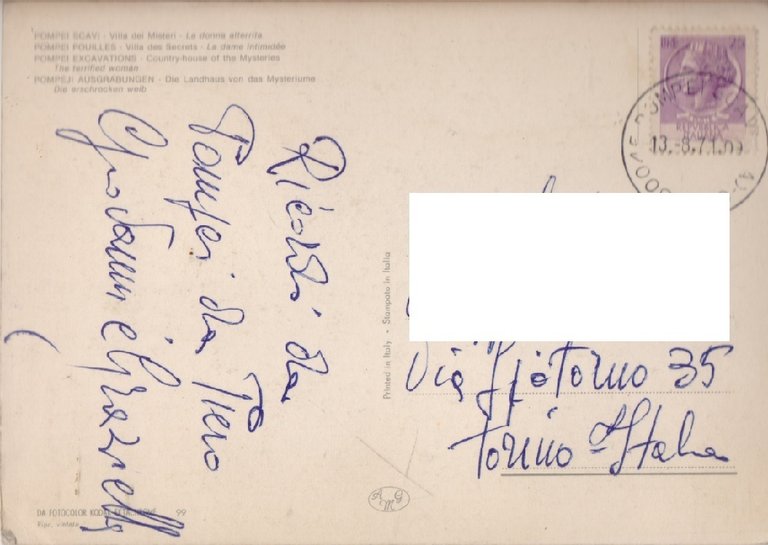 POMPEI SCAVI - Villa dei Misteri - La donna atterrita
POMPEI FOUILLES - Villa des Secrets - La dame intimidée
POMPEI EXCAVATIONS - Country-house of the Mysteries
The terrified woman
POMPEJI AUSGRABUNGEN - Die Landhaus von das Mysteriums
Die erschrocken weib
Ricordi da
Pompei da Piero
Giovanni e Graziella
Printed in Italy • Stampato in Italia
13.-8.71
Via 35
Torino Italia
DA FOTOCOLOR KODAK EKTACHROME 99
Ripr. vietata